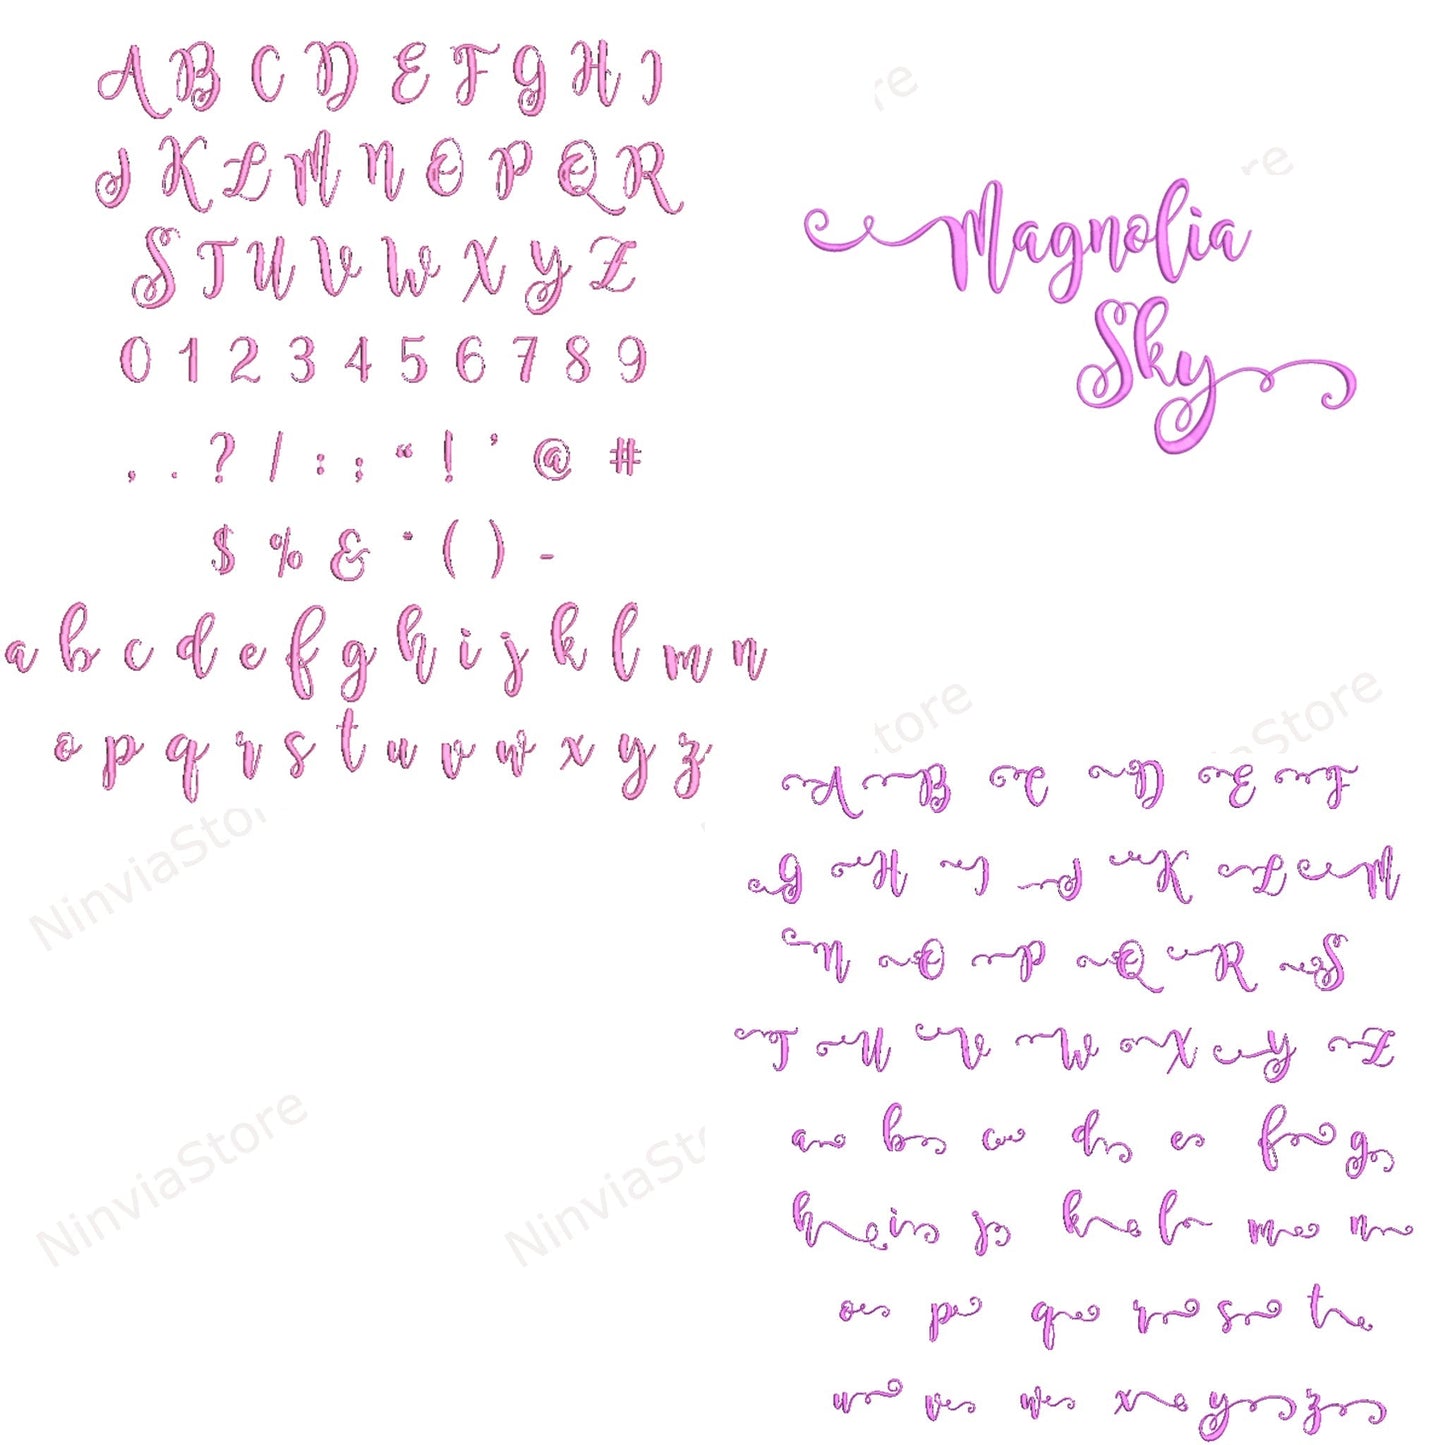 A B C D E F G H I
J K L M N O P Q R
S T U V W X Y Z
0 1 2 3 4 5 6 7 8 9
, . ? / : ; “ ! ’ @ #
$ % & * ( ) -
a b c d e f g h i j k l m n
o p q r s t u v w x y z
Magnolia
Sky
A B C D E F
G H I J K L M
N O P Q R S
T U V W X Y Z
a b c d e f g
h i j k l m n
o p q r s t
u v w x y z
NinviaStore
NinviaStore